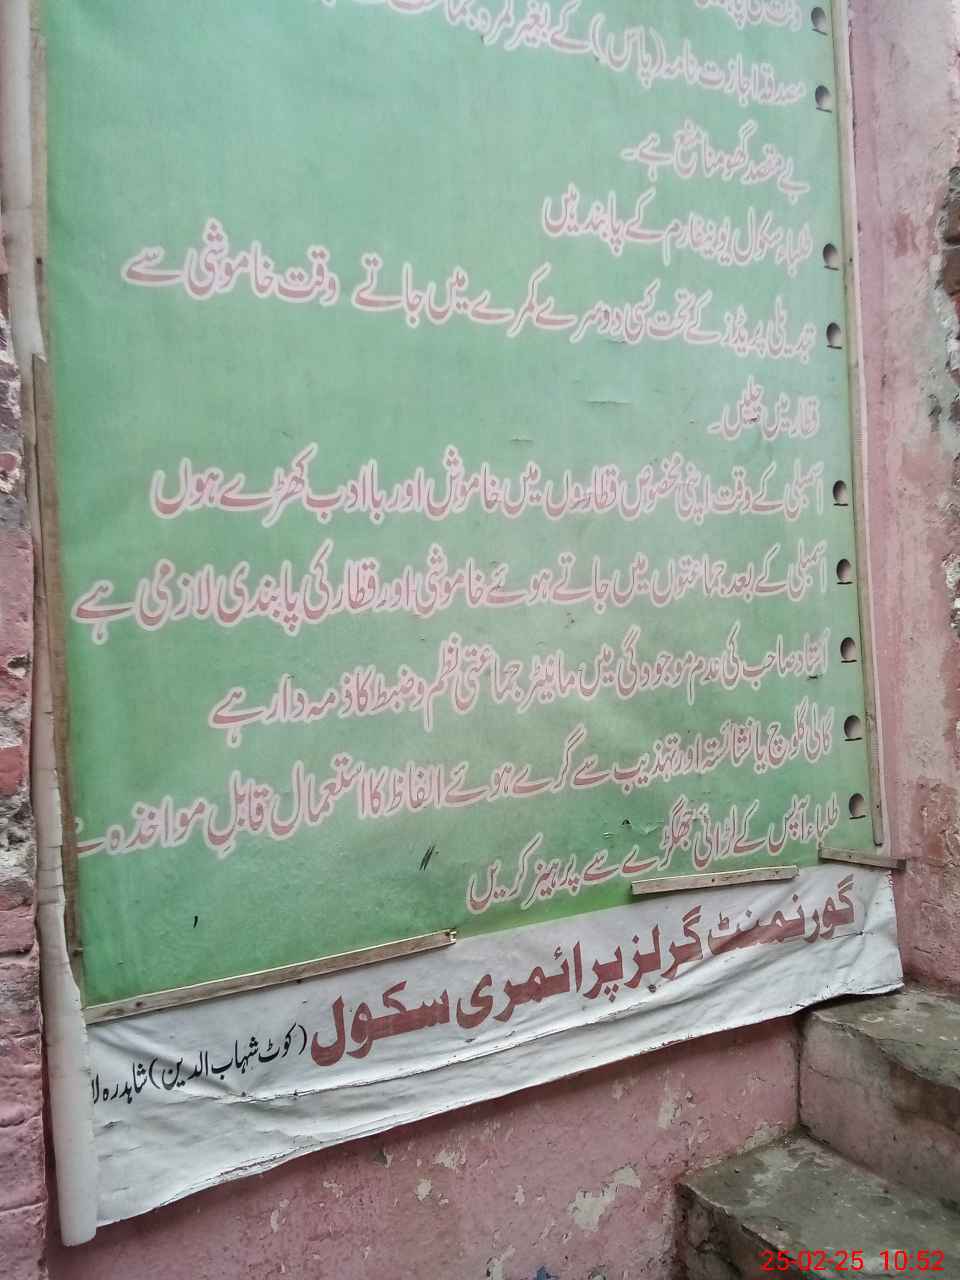 وقت کی
مصدقہ اجازت نامہ (پاس) کے بغیر کمرہ
بے مقصد گھومنا منع ہے۔
طلباء سکول یونیفارم کے پابند ہیں
تبدیلی پریڈز کے تحت کسی دوسرے کمرے میں جاتے وقت خاموشی سے
قطار میں چلیں۔
اسمبلی کے وقت اپنی مخصوص قطاروں میں خاموش اور باادب کھڑے ہوں
اسمبلی کے بعد جماعتوں میں جاتے ہوئے خاموشی اور قطار کی پابندی لازمی ہے
استاد صاحب کی عدم موجودگی میں مانیٹر جماعتی نظم و ضبط کا ذمہ دار ہے
گالی گلوچ یا نشائستہ اور تہذیب سے گرے ہوئے الفاظ کا استعمال قابلِ مواخذہ
طلباء آپس کے لڑائی جھگڑے سے پرہیز کریں
گورنمنٹ گرلز پرائمری سکول (کوٹ شہاب الدین) شاہدرہ لا
25-02-25 10:52